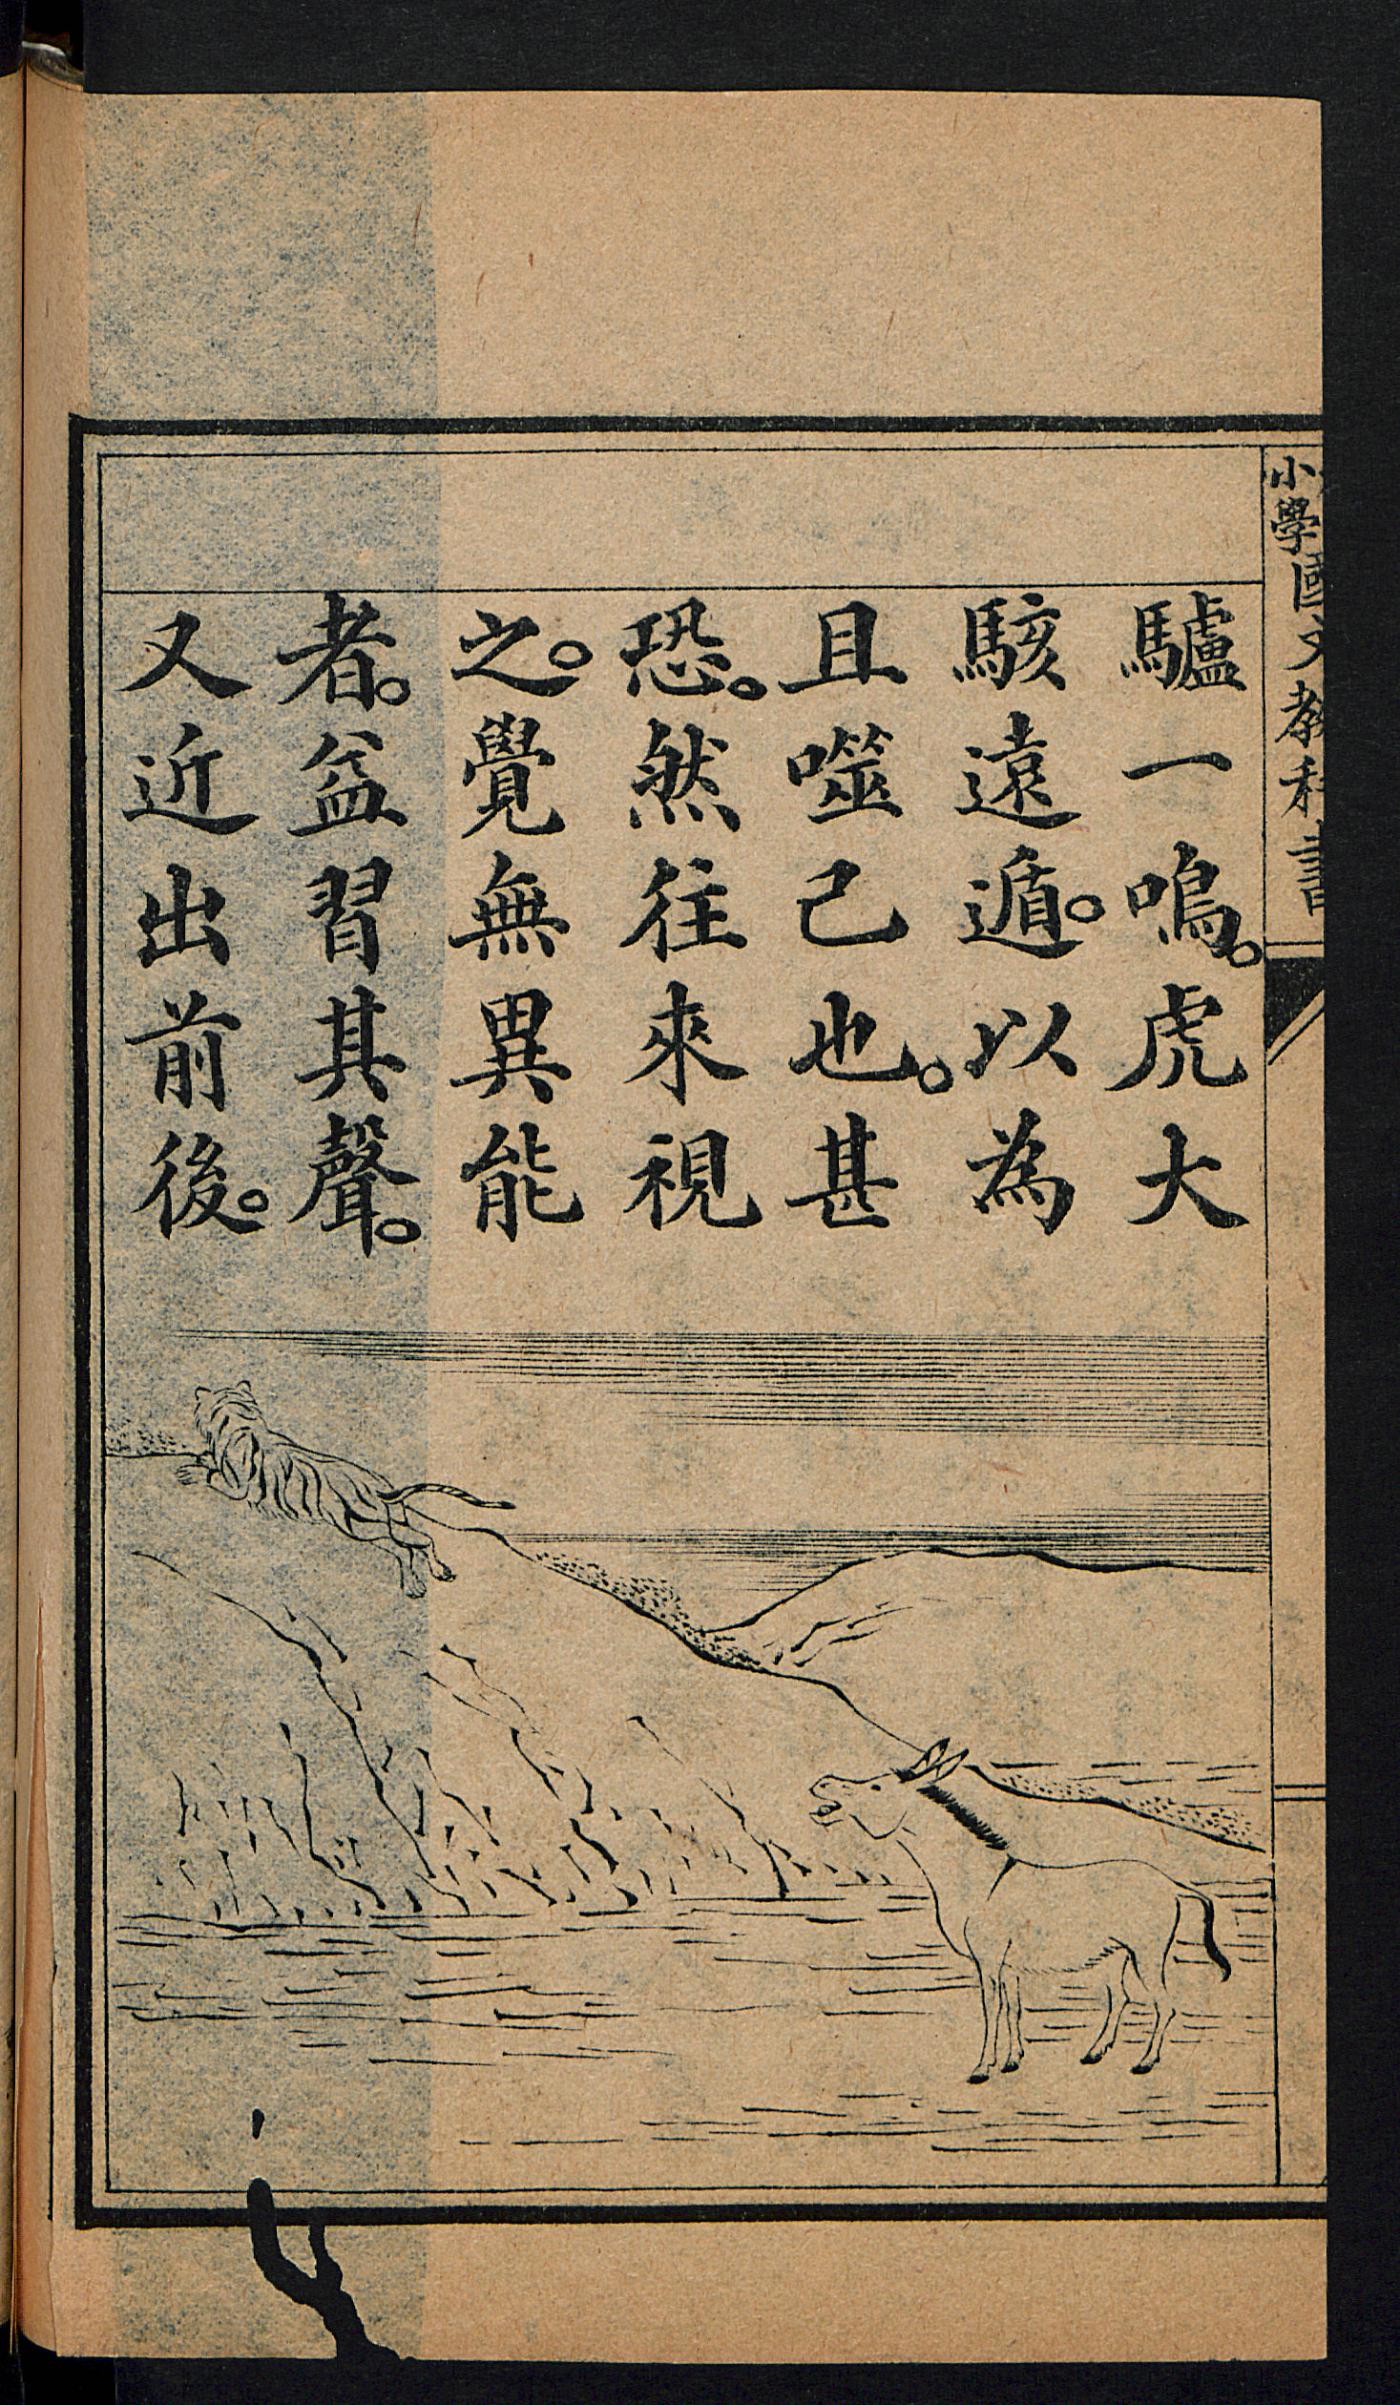 小學國文教科書
驢一鳴。虎大
駭遠遁。以為
且噬己也。甚
恐。然往來視
之。覺無異能
者。益習其聲。
又近出前後。